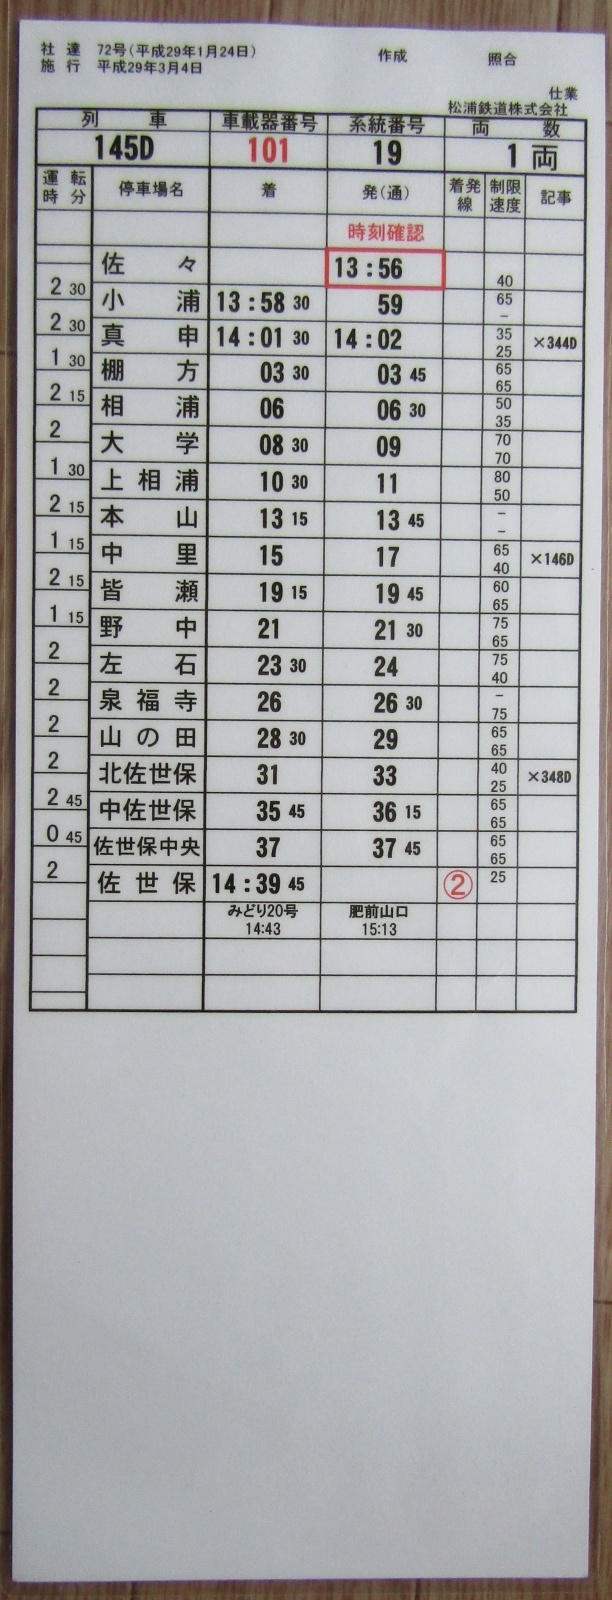 社 達 72号(平成29年1月24日) 作成 照合
施 行 平成29年3月4日
仕業
松浦鉄道株式会社
列 車 車載器番号 系統番号 両 数
145D 101 19 1 両
運 転 時 分 停車場名 着 発(通) 着発線 制限速度 記事
時刻確認
佐 々 13:56 40
2 30
小 浦 13:58 30 59 65 -
2 30
真 申 14:01 30 14:02 35 25 ×344D
1 30
棚 方 03 30 03 45 65 65
2 15
相 浦 06 06 30 50 35
2
大 学 08 30 09 70 70
1 30
上 相 浦 10 30 11 80 50
2 15
本 山 13 15 13 45 - -
1 15
中 里 15 17 65 40 ×146D
2 15
皆 瀬 19 15 19 45 60 65
1 15
野 中 21 21 30 75 65
2
左 石 23 30 24 75 40
2
泉 福 寺 26 26 30 - 75
2
山 の 田 28 30 29 65 65
2
北佐世保 31 33 40 25 ×348D
2 45
中佐世保 35 45 36 15 65 65
0 45
佐世保中央 37 37 45 65 65
2
佐 世 保 14:39 45 ② 25
みどり20号 肥前山口
14:43 15:13